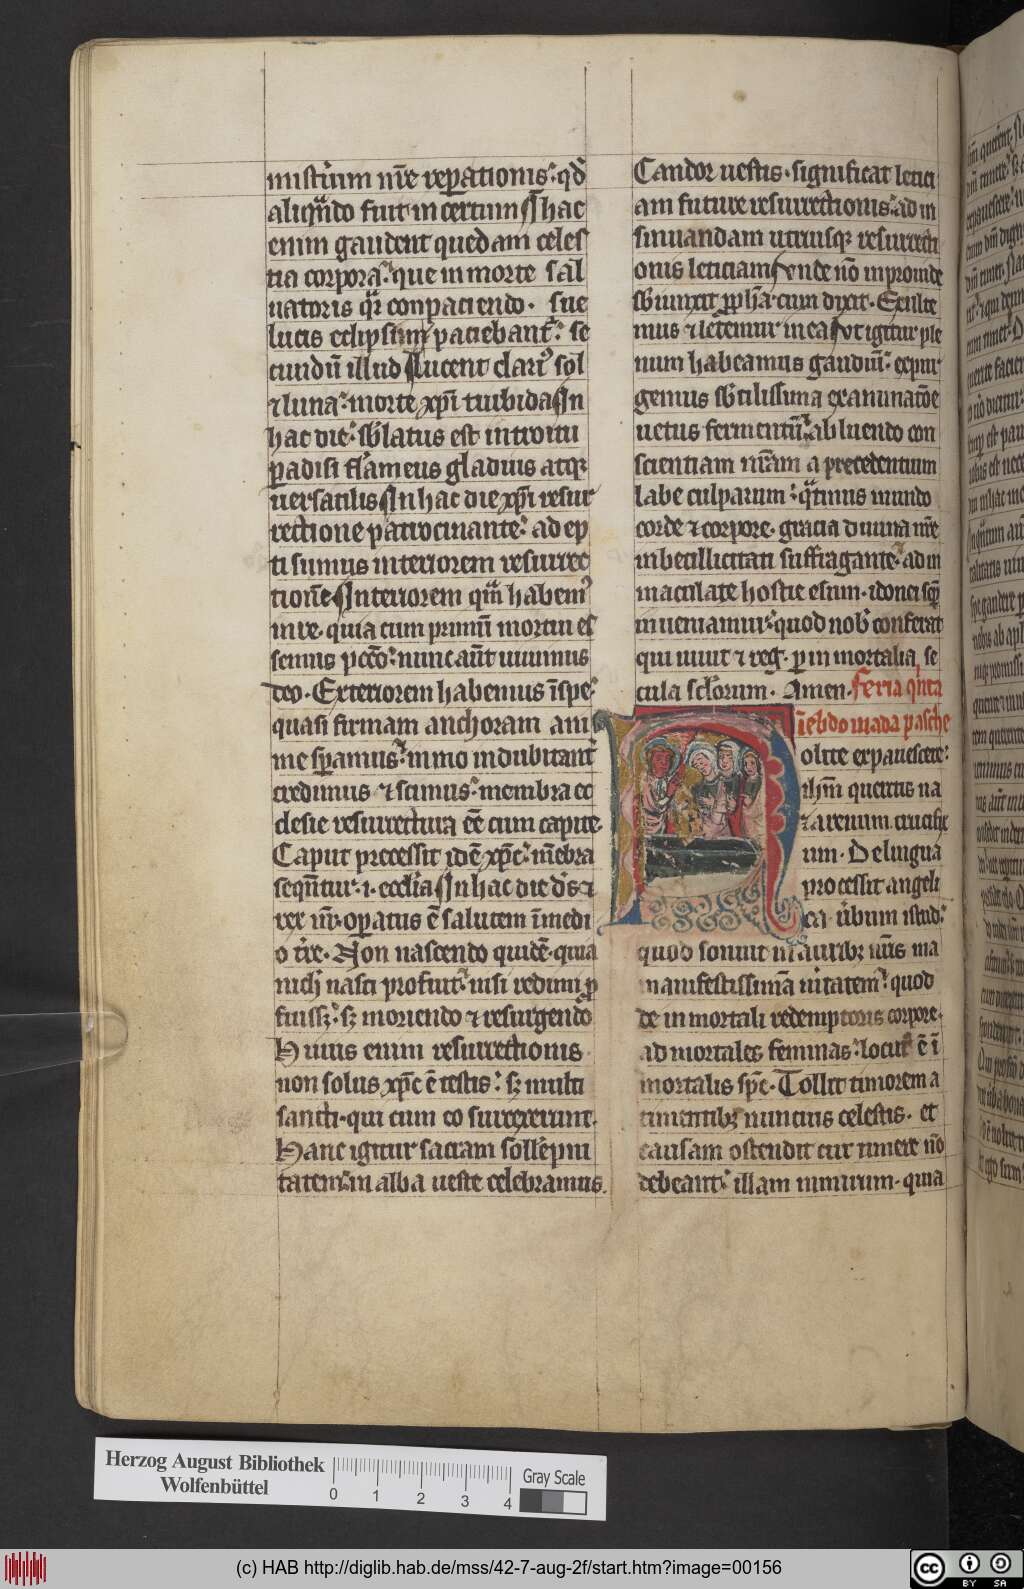 misterium nr̄e rep̱ationis: qd̄
aliqn̄do fuit incertum In hac
enim gaudent quedam celes
tia corpora: que in morte sal
uatoris qͣ conpaciendo · sue
lucis eclypsim paciebant̄: se
cundū illud Lucent clari᷒ sol
⁊ luna: morte xp̄i turbida In
hac die: sb̄latus est introitu
p̱adisi flameus gladius atqꝫ
uersatilis In hac die xp̄i resur
rectione patrocinante: adep
ti sumus interiorem resurrec
tionē Interiorem qm̄ habem᷒
in re · quia cum primū mortui es
semus pcc̄o: nunc aūt uiuimus
deo · Exteriorem habemus ī spe:
quasi firmam anchoram ani
me sp̱amus: immo indubitant̄
credimus ⁊ scimus: membra ec
clesie resurrectura ee̅ cum capite·
Caput precessit idē xp̄c: mēbra
sequn̄tur · i · ecclīa In hac die d̄s ⁊
rex nr̄ · op̱atus ē salutem ī medi
o t̄re · Non nascendo quidē · quia
nich̄ nasci profuit: nisi redimi p̱
fuissꝫ: sꝫ moriendo ⁊ resurgendo
Huius enim resurrectionis
non solus xp̄c ē testis: sꝫ multi
sancti · qui cum eo surrexerunt·
Hanc igitur sacram sollēpni
tatem: in alba ueste celebramus·
Candor uestis · significat letici
am future resurrectionis: ad in
sinuandam utriusqꝫ resurrecti
onis leticiam Vnde nō inprouide
sb̄iunxit pp̄ha · cum dixit · Exulte
mus ⁊ letemur in ea Vt igitur ple
num habeamus gaudiū: expur
gemus sb̄tilissima exanimatōe
uetus fermentū: abluendo con
scientiam nr̄am a precedentium
labe culparum: qͣtinus mundo
corde ⁊ corpore · gracia diuina nr̄e
inbecillicitati suffragante: ad in
maculate hostie esum · idonei sēp̱
inueniamur: quod nob̄ conferat
qui uiuit ⁊ reg̱ · p̱ inmortalia se
cula sclōrum · Amen · Feria qͥnta
ī ebdomada pasche
N olite expauescere:
ih̄m queritis na
zarenum crucifix
um · De lingua
processit angeli
ca · ūbum istud:
quod sonuit in auribꝫ nr̄is ma
manifestissimā ūitatem: quod
de inmortali redemptoris corpore·
ad mortales feminas: locut᷒ ē ī
mortalis sp̄c · Tollit timorem a
timentibꝫ nuncius celestis · et
causam ostendit cur timere nō
debeant: illam nimirum · quia
Herzog August Bibliothek
Wolfenbüttel
0 1 2 3 4
Gray Scale
(c) HAB http://diglib.hab.de/mss/42-7-aug-2f/start.htm?image=00156
cc BY SA